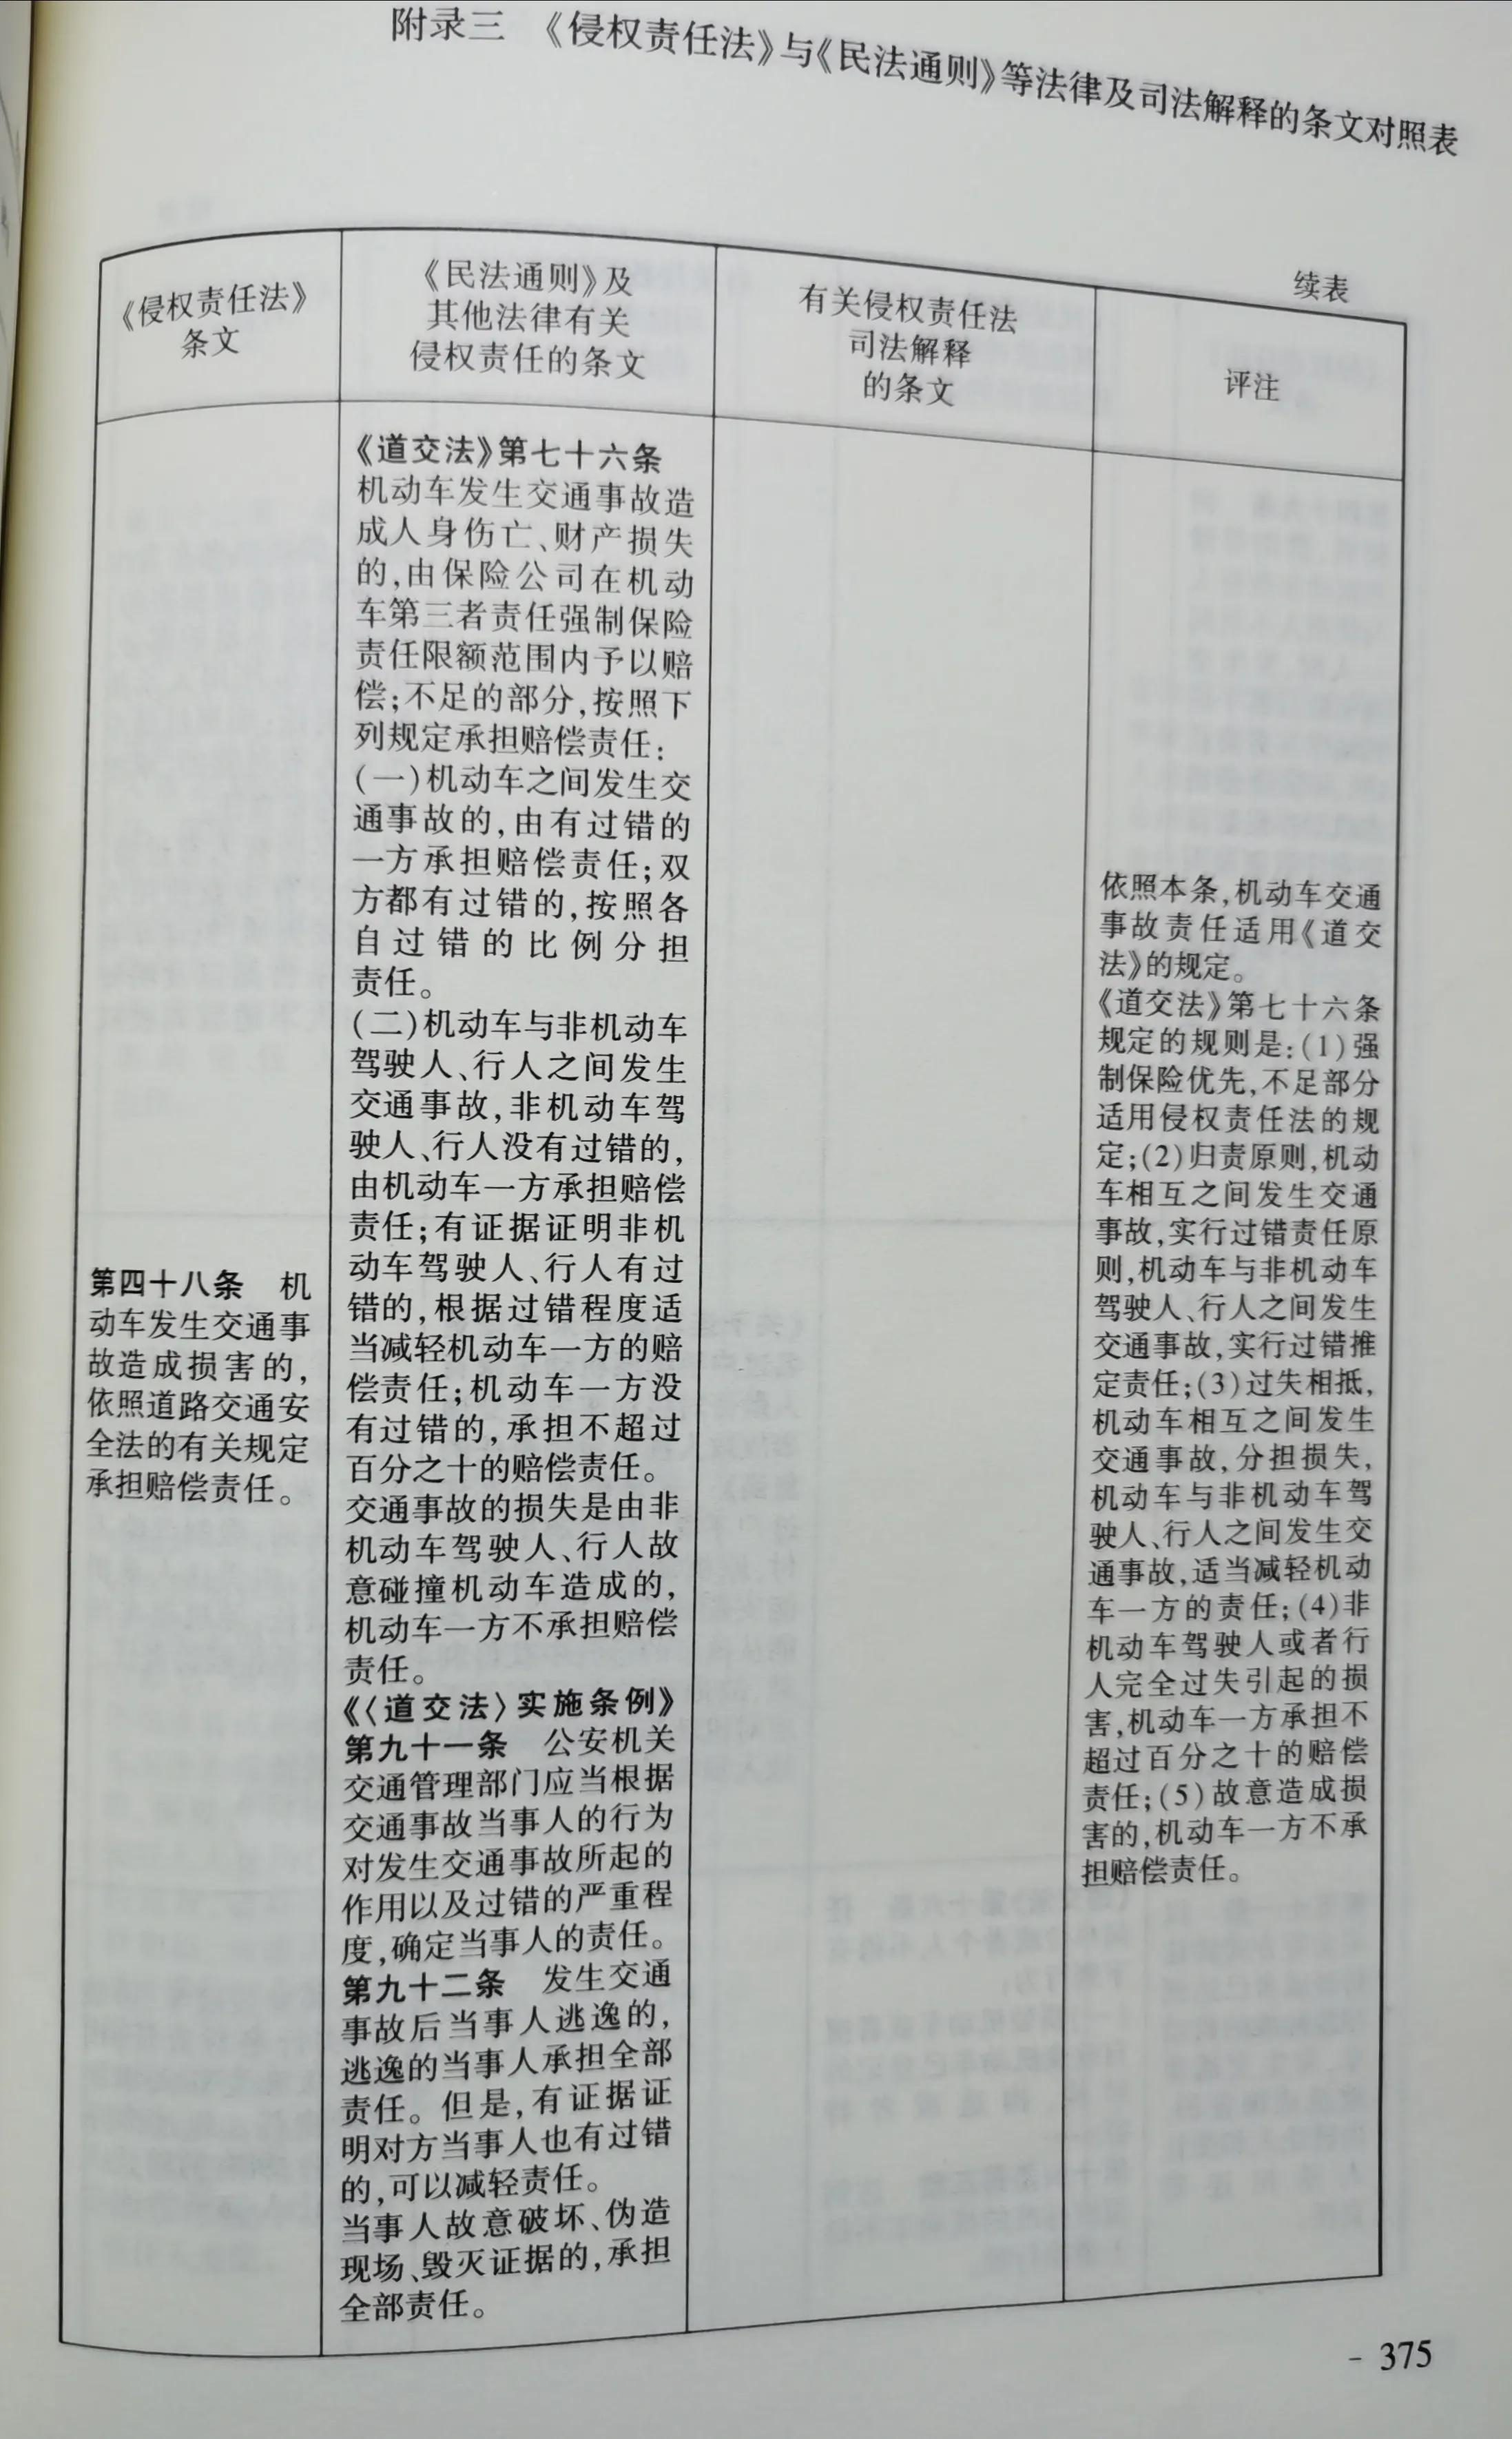 附录三 《侵权责任法》与《民法通则》等法律及司法解释的条文对照表
续表
《侵权责任法》
条文
《民法通则》及
其他法律有关
侵权责任的条文
有关侵权责任法
司法解释
的条文
评注
第四十八条 机
动车发生交通事
故造成损害的,
依照道路交通安
全法的有关规定
承担赔偿责任。
《道交法》第七十六条
机动车发生交通事故造
成人身伤亡、财产损失
的,由保险公司在机动
车第三者责任强制保险
责任限额范围内予以赔
偿;不足的部分,按照下
列规定承担赔偿责任:
(一)机动车之间发生交
通事故的,由有过错的
一方承担赔偿责任;双
方都有过错的,按照各
自过错的比例分担
责任。
(二)机动车与非机动车
驾驶人、行人之间发生
交通事故,非机动车驾
驶人、行人没有过错的,
由机动车一方承担赔偿
责任;有证据证明非机
动车驾驶人、行人有过
错的,根据过错程度适
当减轻机动车一方的赔
偿责任;机动车一方没
有过错的,承担不超过
百分之十的赔偿责任。
交通事故的损失是由非
机动车驾驶人、行人故
意碰撞机动车造成的,
机动车一方不承担赔偿
责任。
《〈道交法〉实施条例》
第九十一条 公安机关
交通管理部门应当根据
交通事故当事人的行为
对发生交通事故所起的
作用以及过错的严重程
度,确定当事人的责任。
第九十二条 发生交通
事故后当事人逃逸的,
逃逸的当事人承担全部
责任。但是,有证据证
明对方当事人也有过错
的,可以减轻责任。
当事人故意破坏、伪造
现场、毁灭证据的,承担
全部责任。
依照本条,机动车交通
事故责任适用《道交
法》的规定。
《道交法》第七十六条
规定的规则是:(1)强
制保险优先,不足部分
适用侵权责任法的规
定;(2)归责原则,机动
车相互之间发生交通
事故,实行过错责任原
则,机动车与非机动车
驾驶人、行人之间发生
交通事故,实行过错推
定责任;(3)过失相抵,
机动车相互之间发生
交通事故,分担损失,
机动车与非机动车驾
驶人、行人之间发生交
通事故,适当减轻机动
车一方的责任;(4)非
机动车驾驶人或者行
人完全过失引起的损
害,机动车一方承担不
超过百分之十的赔偿
责任;(5)故意造成损
害的,机动车一方不承
担赔偿责任。
- 375